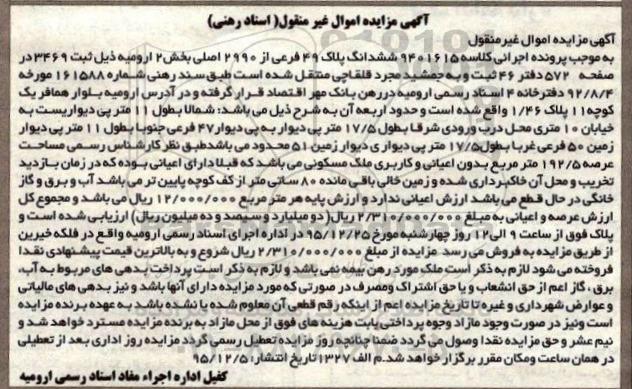 آگهی مزایده اموال غیر منقول( اسناد رهنی)
آگهی مزایده اموال غیرمنقول
به موجب پرونده اجرائی کلاسه ۹۴۰۱۶۱۵ ششدانگ پلاک ۴۹ فرعی از ۲۹۹۰ اصلی بخش۲ ارومیه ذیل ثبت ۳۴۶۹ در
صفحه ۵۷۲ دفتر ۴۶ ثبت و به جمشید مجرد قلقاچی منتقل شده است طبق سند رهنی شماره ۱۶۱۵۸۸ مورخه
۹۲/۸/۴ دفترخانه ۴ اسناد رسمی ارومیه دررهن بانک مهر اقتصاد قرار گرفته و در آدرس ارومیه بلوار همافر یک
کوچه۱۱ پلاک ۱/۴۶ واقع شده است و حدود اربعه آن به شرح ذیل می باشد: شمالا بطول ۱۱ متر پی دیواریست به
خیابان ۱۰ متری محل درب ورودی شرقا بطول ۱۷/۵ متر پی دیوار به پی دیوار۴۷ فرعی جنوبا بطول ۱۱ متر پی دیوار
زمین ۵۰ فرعی غربا بطول ۱۷/۵ متر پی دیوار ی دیوار زمین ۵۱ محدود می باشدطبق نظر کارشناس رسمی مساحت
عرصه ۱۹۲/۵ متر مربع بدون اعیانی و کاربری ملک مسکونی می باشد که قبلا دارای اعیانی بوده که در زمان بازدید
تخریب و محل آن خاکبرداری شده و زمین خالی باقی مانده ۸۰ سانی متر از کف کوچه پایین تر می باشد آب و برق و گاز
خانگی در حال قطع می باشد ارزش اعیانی ندارد و ارزش پایه هر متر مربع ۱۲/۰۰۰/۰۰۰ ریال می باشد و مجموع کل
ارزش عرصه و اعیانی به مبلغ ۲/۳۱۰/۰۰۰/۰۰۰ ریال( دو میلیارد و سیصد و ده میلیون ریال) ارزیابی شده است و
پلاک فوق از ساعت ۹ الی۱۲ روز چهارشنبه مورخ ۹۵/۱۲/۲۵ در اداره اجرای اسناد رسمی ارومیه واقع در فلکه خیرین
از طریق مزایده به فروش می رسد مزایده از مبلغ ۲/۳۱۰/۰۰۰/۰۰۰ ریال شروع و به بالاترین قیمت پیشنهادی نقدا
فروخته می شود لازم به ذکر است ملک مورد رهن بیمه نمی باشد و لازم به ذکر است پرداخت بدهی های مربوط به آب،
برق، گاز اعم از حق انشعاب و یا حق اشتراک ومصرف در صورتی که مورد مزایده دارای آنها باشد و نیز بدهی های مالیاتی
و عوارض شهرداری و غیره تا تاریخ مزایده اعم از اینکه رقم قطعی آن معلوم شده یا نشده باشد به عهده برنده مزایده
است ونیز در صورت وجود مازاد وجوه پرداختی بابت هزینه های فوق از محل مازاد به برنده مزایده مسترد خواهد شد و
نیم عشر و حق مزایده نقدا وصول می گردد ضمنا چنانچه روز مزایده تعطیل رسمی گردد مزایده روز اداری بعد از تعطیلی
در همان ساعت ومکان مقرر برگزار خواهد شد.م الف ۱۳۲۷ تاریخ انتشار: ۹۵/۱۲/۵
کفیل اداره اجراء مفاد اسناد رسمی ارومیه